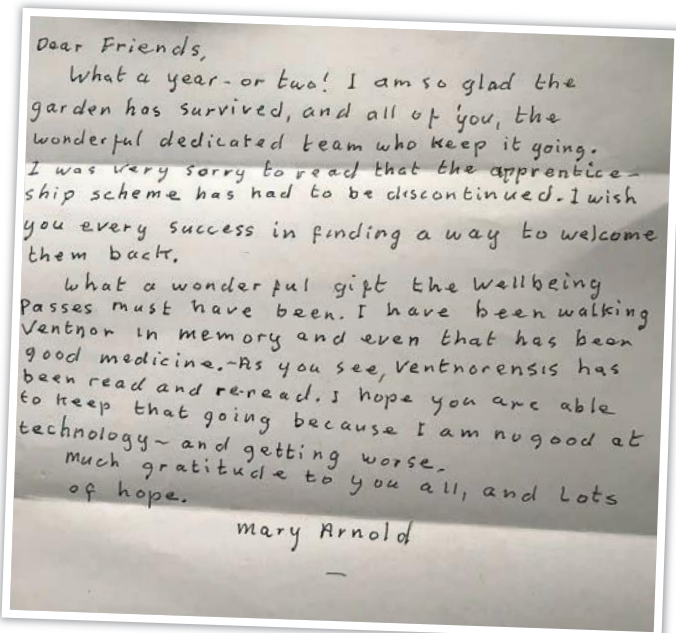 Dear Friends,
What a year - or two! I am so glad the
garden has survived, and all of you, the
wonderful dedicated team who keep it going.
I was very sorry to read that the apprentice-
ship scheme has had to be discontinued. I wish
you every success in finding a way to welcome
them back.
What a wonderful gift the Wellbeing
Passes must have been. I have been walking
Ventnor in memory and even that has been
good medicine. - As you see, Ventnorensis has
been read and re-read. I hope you are able
to keep that going because I am no good at
technology ~ and getting worse.
Much gratitude to you all, and Lots
of hope.
Mary Arnold
—